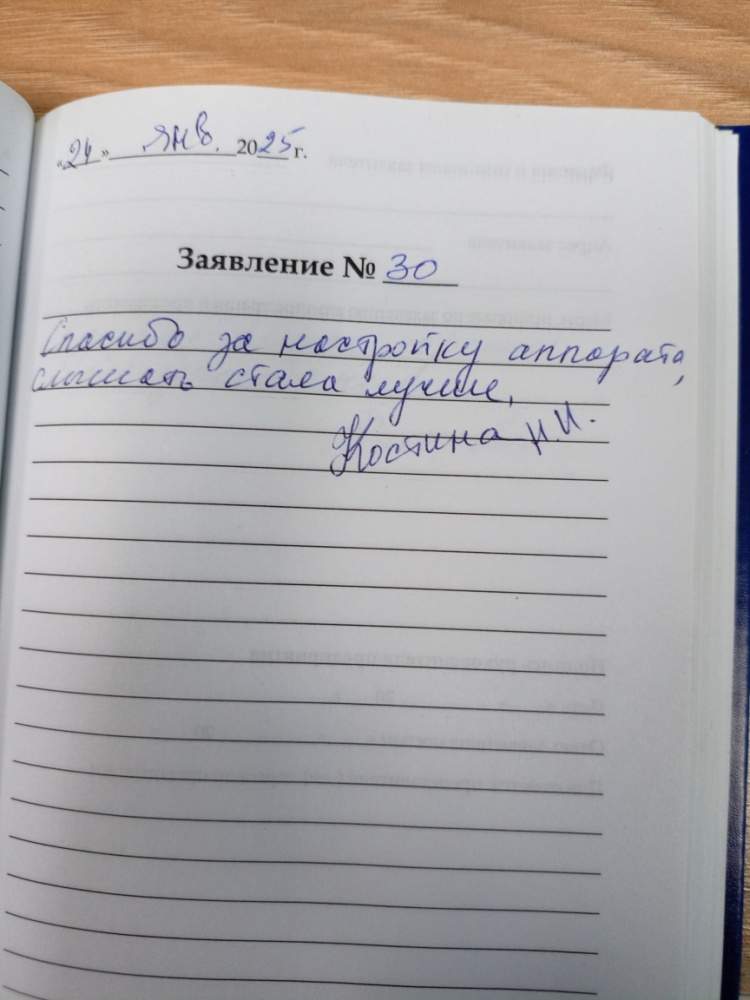 «24» янв. 2025 г.
Заявление № 30
Спасибо за настройку аппарата,
слышать стала лучше.
Костина Н.И.